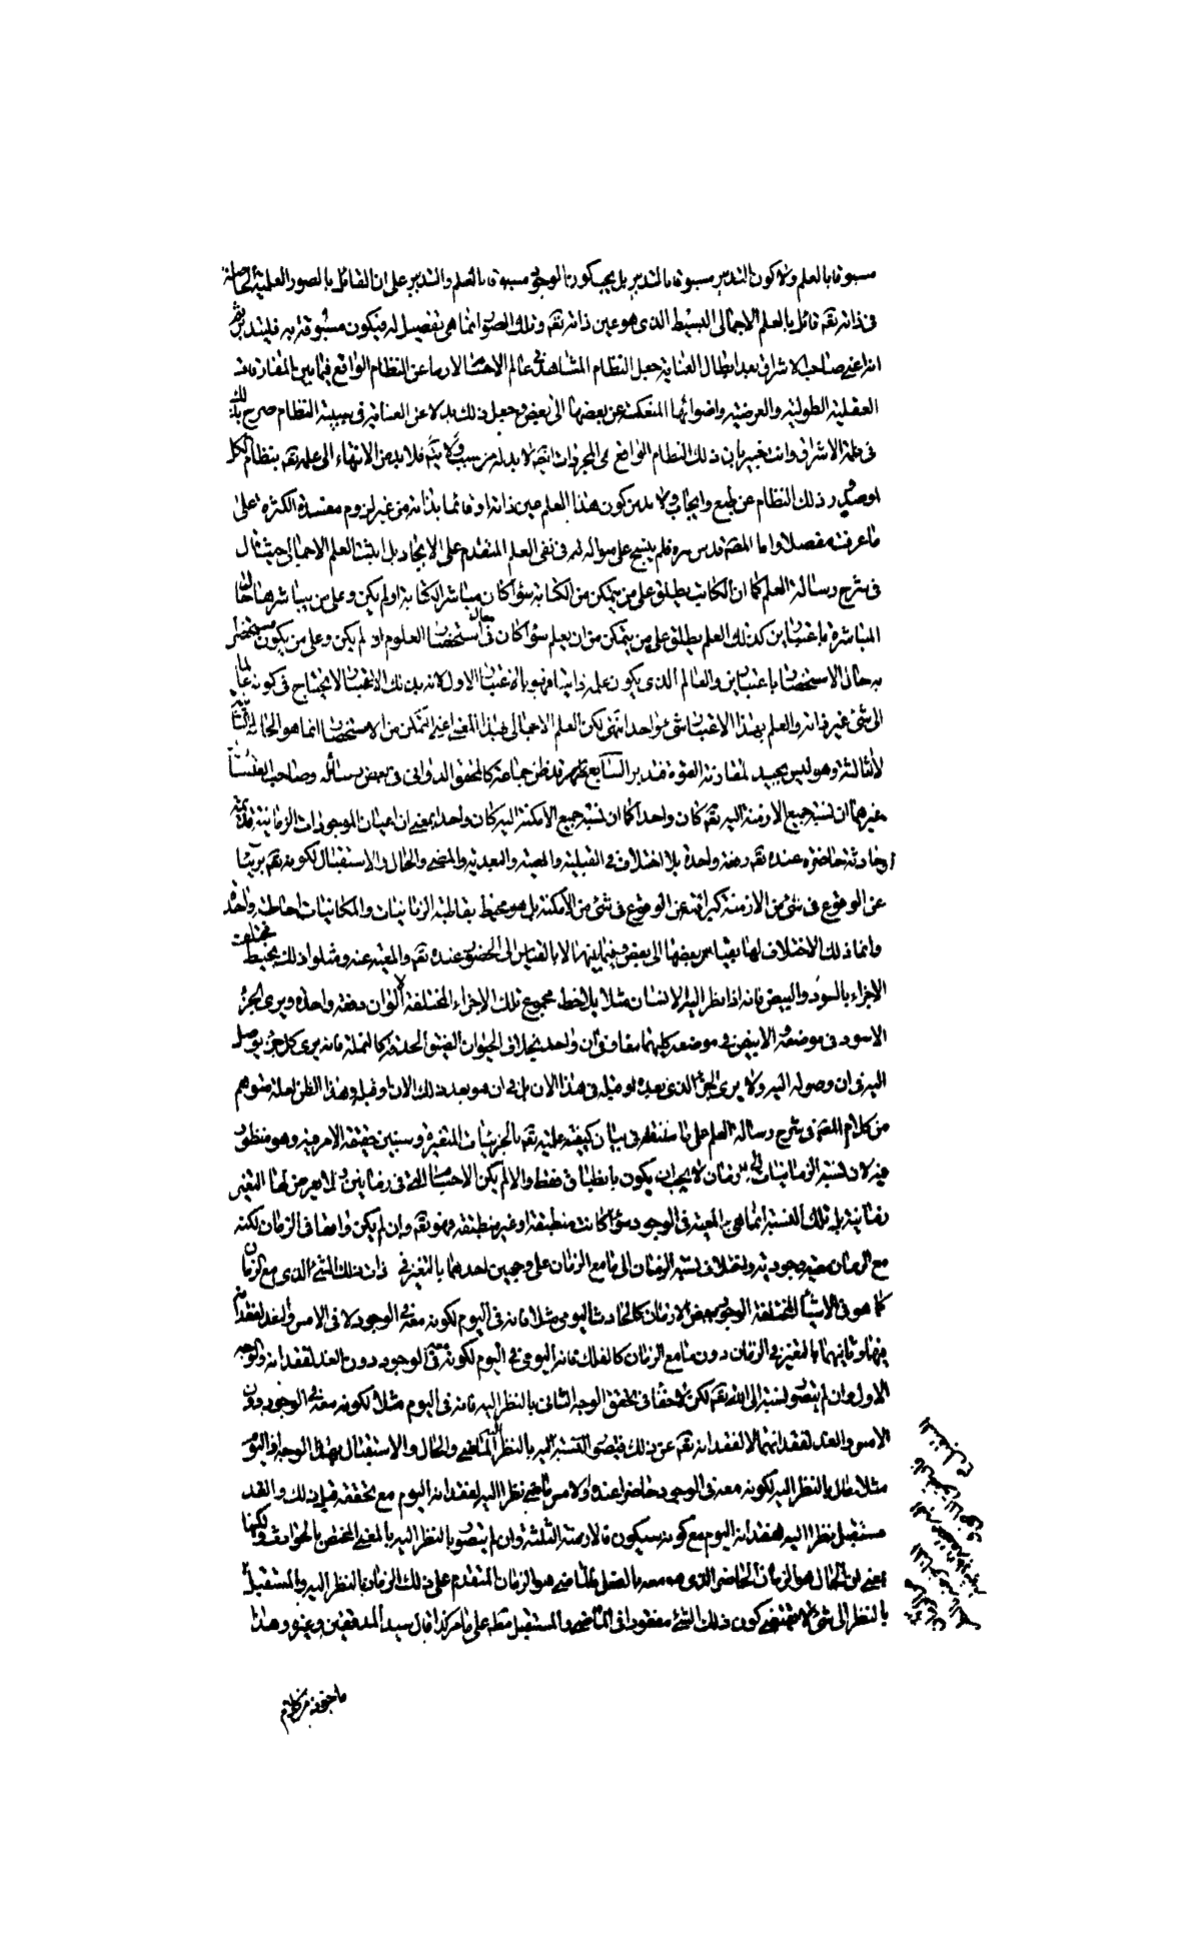 مسبوقا بالعلم ولا كون التدبير مسبوقا بالتدبير بل يجب كون الوجود مسبوقا بالعلم والتدبير على ان القائل بالصور العلمية الحاصلة
فى ذاته تعه قائل بالعلم الاجمالى البسيط الذى هو عين ذاته تعه وتلك الصور انما هى تفصيل له فيكون مسبوقة به فليتدبر ثم
انه اعنى صاحب الاشراق بعد ابطال العناية جعل النظام المشاهد فى عالم الاجسام لازما عن النظام الواقع فيما بين المفارقات
العقلية الطولية والعرضية واضوائها المنعكسة عن بعضها الى بعض وجعل ذلك بدلا عن العناية فى سببية النظام صرح بذلك
فى حكمة الاشراق وانت خبير بان ذلك النظام الواقع فى المجردات ايضا لابد له من سبب فلابد من الانتهاء الى علمه تعه بنظام الكل
او صدور ذلك النظام عن طبع وايجاب ولابد من كون هذا العلم عين ذاته او قائما بذاته من غير لزوم مفسدة الكثرة على
ما عرفت مفصلا واما المصه قدس سره فلم ينسج على منواله فى نفى العلم المتقدم على الايجاد بل اثبت العلم الاجمالى حيث قال
فى شرح رسالة العلم كما ان الكاتب يطلق على من يتمكن من الكتابة سواء كان مباشر الكتابة او لم يكن وعلى من يباشرها حال
المباشرة باعتبارين كذلك العلم يطلق على من يتمكن من ان يعلم سواء كان فى حال استحضار العلوم او لم يكن وعلى من يكون مستحضرا
به حال الاستحضار باعتبارين والعالم الذى يكون علمه ذاتيا فهو بالاعتبار الاول لانه بذلك الاعتبار لا يحتاج فى كونه عالما
الى شئ غير ذاته والعلم بهذا الاعتبار شئ واحد انتهى لكن العلم الاجمالى بهذا المعنى اعنى التمكن من الاستحضار انما هو الحالة الثانية
لا الثالثة وهو ليس بجيد لمقارنة القوة فتدبر السابع قد ظن جماعة كالمحقق الدوانى فى بعض رسائله وصاحب القبسات
غيرهما ان نسبة جميع الازمنة اليه تعه كان واحد كما ان نسبة جميع الامكنة اليه كان واحد بمعنى ان اعيان الموجودات الزمانية قديمة
او حادثة حاضرة عنده تعه دفعة واحدة بلا اختلاف فى القبلية والمعية والبعدية والمضى والحال والاستقبال لكونه تعه بريئا
عن الوقوع فى شئ من الازمنة كبراءته عن الوقوع فى شئ من الامكنة بل هو محيط بقاطبة الزمانيات والمكانيات احاطة واحدة
وانما ذلك الاختلاف لها بقياس بعضها الى بعض وفيما بينها لا بالقياس الى الحضور عنده تعه والمعية عنده ومثلوا ذلك بخيط مختلف
الاجزاء بالسواد والبياض فانه اذا نظر اليه الانسان مثلا يلاحظ مجموع تلك الاجزاء المختلفة الالوان دفعة واحدة ويرى الجزء
الاسود فى موضعه والابيض فى موضعه كليهما معا فى آن واحد بخلاف الحيوان الضيق الحدقة كالنملة فانه يرى كل جزء يوصل
اليه فى ان وصوله اليه ولا يرى الجزء الذى بعده او قبله فى هذا الان بل فى ان هو بعد ذلك الان او قبله وهذا الظن لعله متوهم
من كلام المصه فى شرح رسالة العلم على ما سننقله فى بيان كيفية علمه تعه بالجزئيات المتغيرة وسنبين حقيقة الامر فيه وهو منظور
فيه لان نسبة الزمانيات الى الزمان لا يجب ان يكون بانطباق فقط والا لم يكن الاجسام التى فى زمانين لما يعرض لها التغير
زمانية بل تلك النسبة انما هى بالمعية فى الوجود سواء كانت منطبقة او غير منطبقة فهو تعه وان لم يكن واقعا فى الزمان لكنه
مع الزمان معية وجودية واختلاف نسبة الزمان الى ما مع الزمان على وجهين احدهما بالتغير فى ذات ذلك الشئ الذى مع الزمان
كما هو فى الاشياء المختلفة الوجود بعض الازمان كالحادث اليومى مثلا فانه فى اليوم لكونه معه فى الوجود لا فى الامس والغد لفقدانه
فيهما وثانيهما بالتغير فى الزمان دون ما مع الزمان كالفلك فانه اليومى فى اليوم لكونه معه فى الوجود دون الغد لفقدانه والوجه
الاول وان لم يتصور نسبة الى الله تعه لكن لا خفاء فى تحقق الوجه الثانى بالنظر اليه فانه فى اليوم مثلا لكونه معه فى الوجود دون
الامس والغد لفقدانهما لا لفقدانه تعه عن ذلك فيتصور النسبة اليه بالنظر الى الماضى والحال والاستقبال بهذا الوجه فاليوم
مثلا حال بالنظر اليه لكونه معه فى الوجود حاضرا عنده والامس ماض نظرا اليه لفقدانه اليوم مع تحققه قبل ذلك والغد
مستقبل نظرا اليه لفقدانه اليوم مع كونه سيكون فالازمنة الثلثة وان لم يتصور بالنظر اليه بالمعنى المختص بالحوادث ولكنها
بمعنى ان الحال هو الزمان الحاضر الذى هو معه بالفعل والماضى هو الزمان المتقدم على ذلك الزمان بالنظر اليه والمستقبل
بالنظر الى شئ لا يقتضى كون ذلك الشئ مفقودا فى الماضى والمستقبل مطلقا على ما مر كذا قال سيد المدققين وغيره وهذا
ماخوذ من كلام